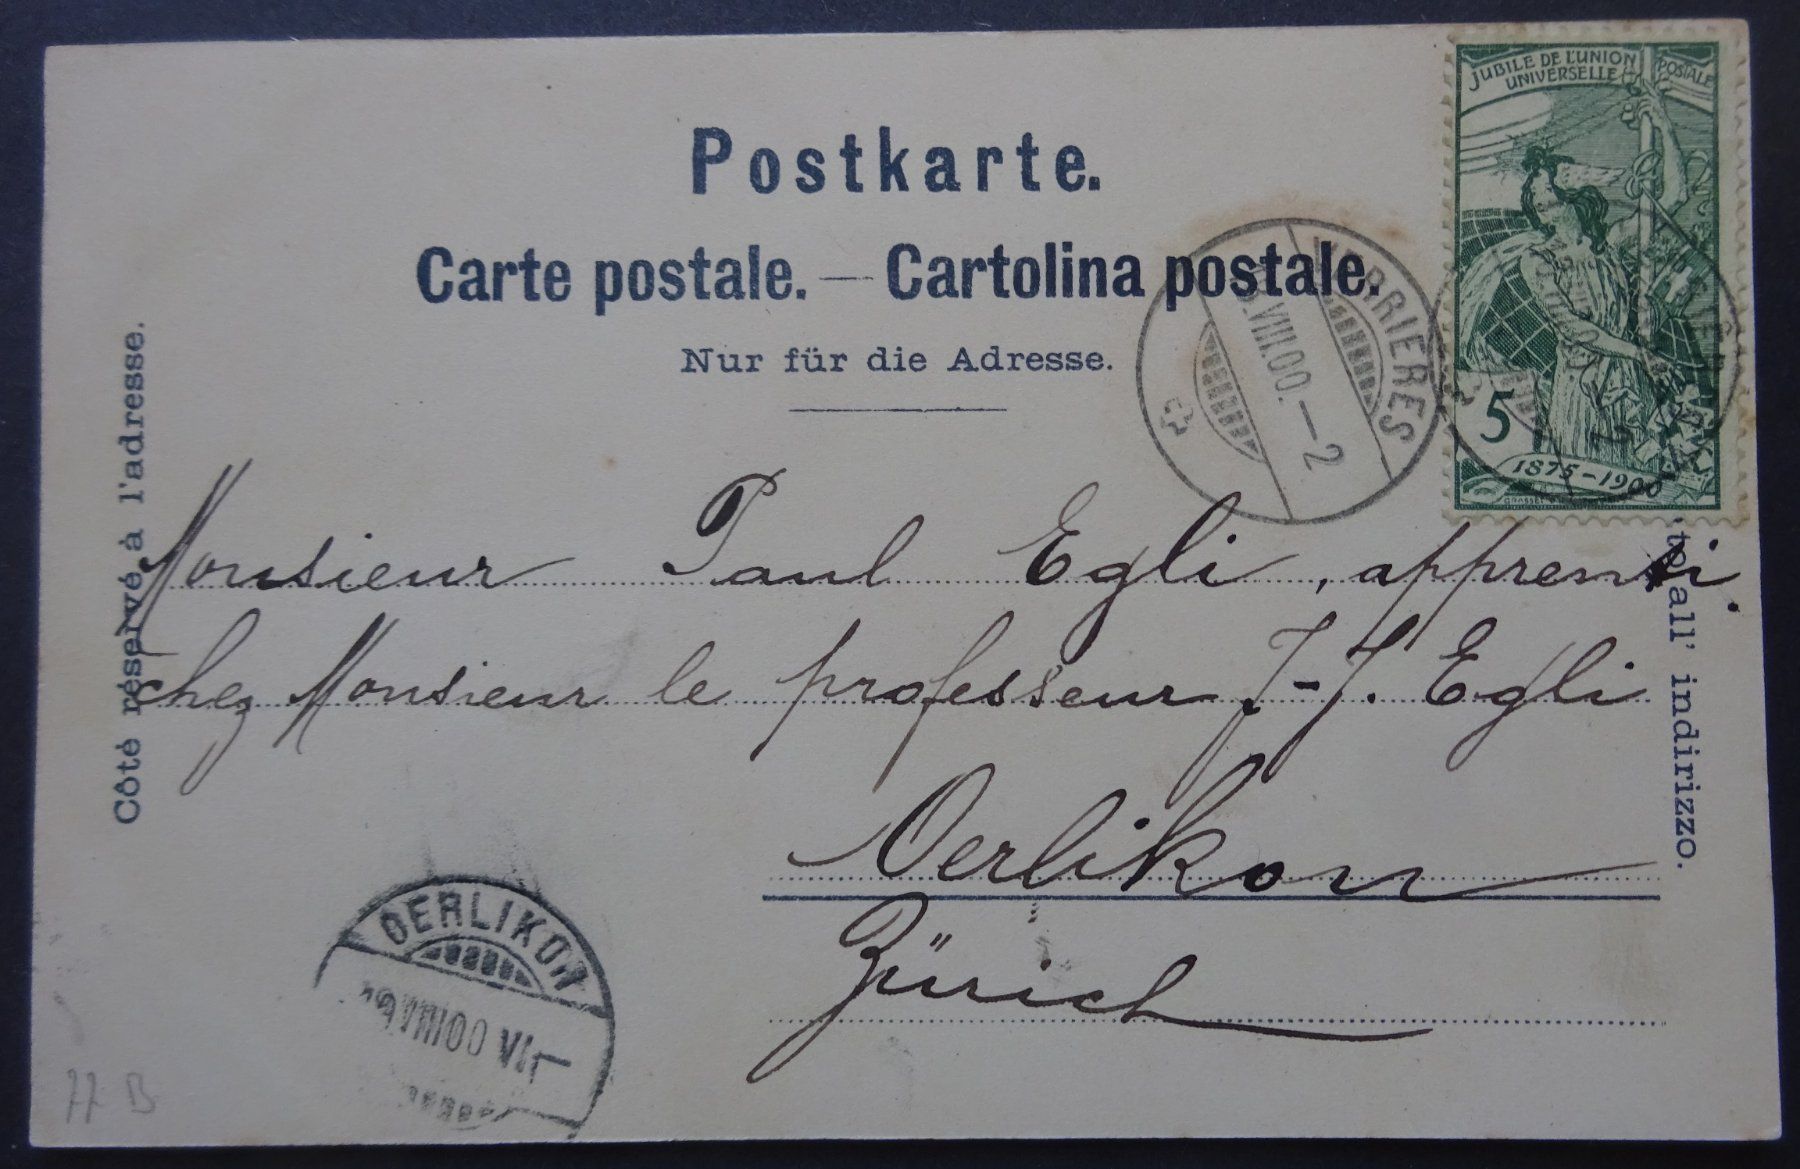 JUBILE DE L'UNION POSTALE
UNIVERSELLE
Postkarte.
Carte postale. — Cartolina postale.
Nur für die Adresse.
Côté réservé à l'adresse.
all' indirizzo.
VERRIERES
VIII.00.—2
5
1875-1900
GRASSET
Monsieur Paul Egli, apprenti
chez Monsieur le professeur J.-J. Egli
Oerlikon
Zürich
OERLIKON
VIII00 VII—